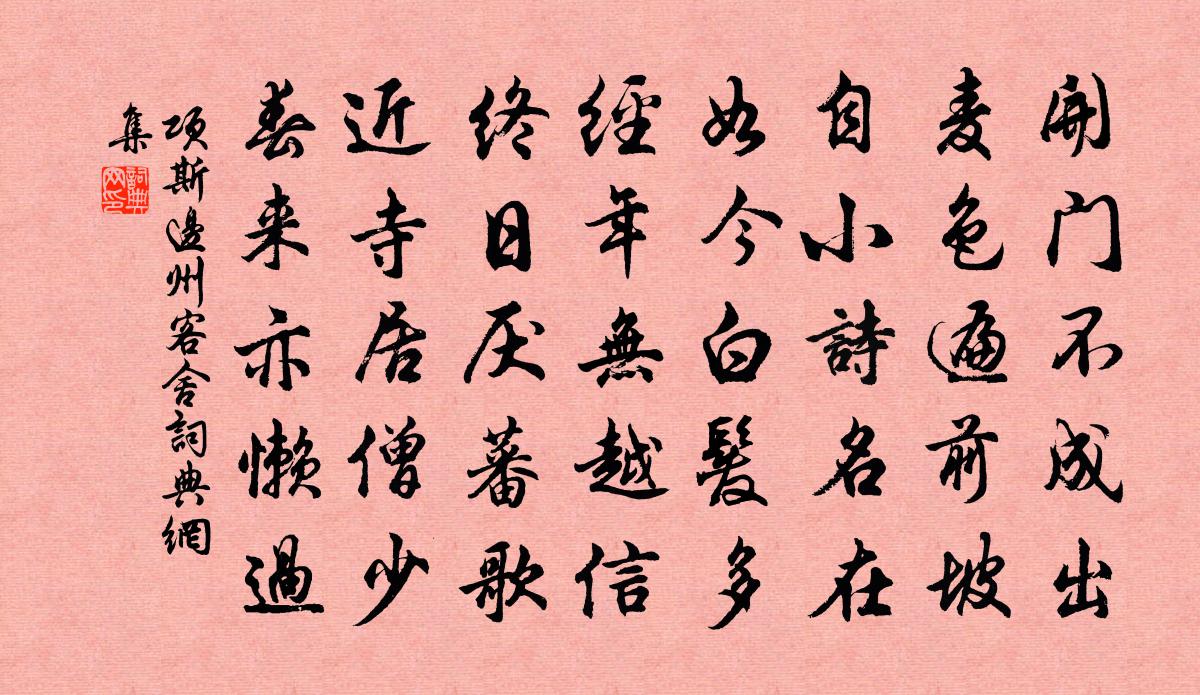 開门不成出
麦色遍前坡
自小詩名在
如今白髮多
經年無越信
終日厌蕃歌
近寺居僧少
春来亦懶過
項斯邊州客舍詞典網
集
詞典
网印